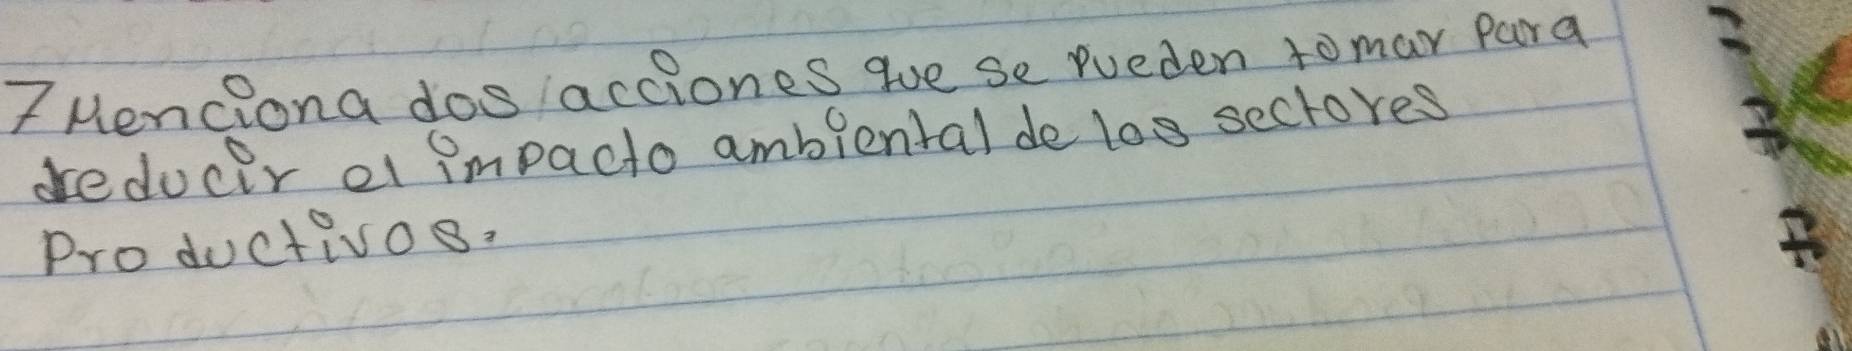 7 Menciona dos acciones que se pueden tomar para
reducir el impacto ambiental de los sectores
Productivos.